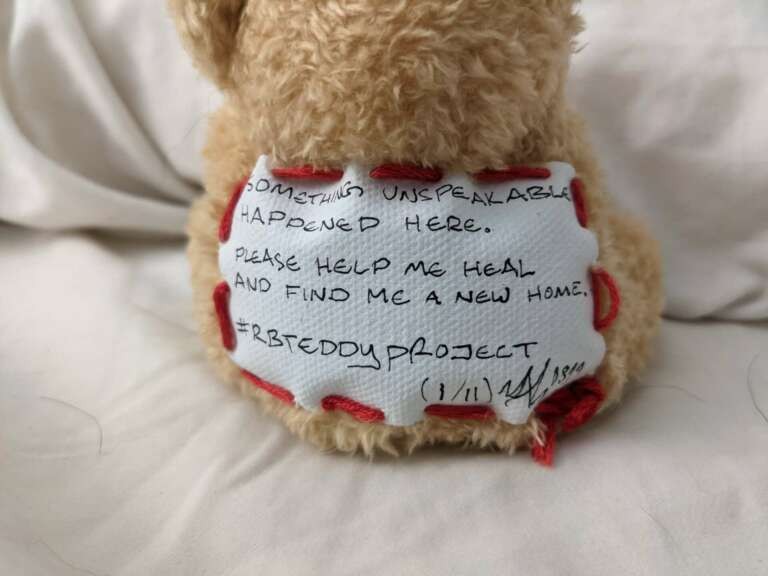 SOMETHING UNSPEAKABLE
HAPPENED HERE.
PLEASE HELP ME HEAL
AND FIND ME A NEW HOME.
#RBTEDDYPROJECT
(1/11)